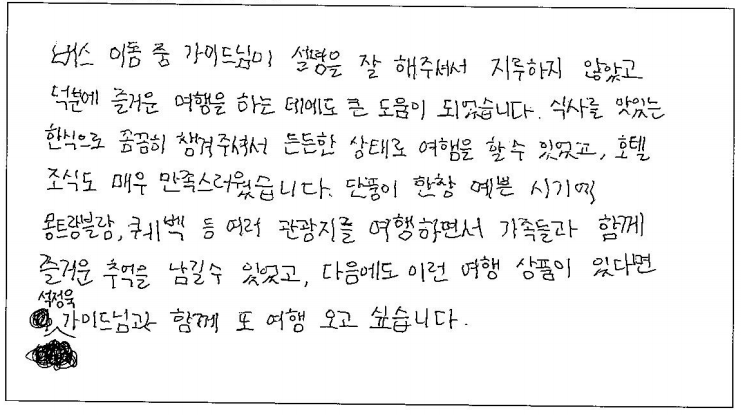 버스 이동 중 가이드님이 설명을 잘 해주셔서 지루하지 않았고
덕분에 즐거운 여행을 하는 데에도 큰 도움이 되었습니다. 식사를 맛있는
한식으로 꼼꼼히 챙겨주셔서 든든한 상태로 여행을 할 수 있었고, 호텔
조식도 매우 만족스러웠습니다. 단풍이 한창 예쁜 시기에
몽트랑블랑, 퀘벡 등 여러 관광지를 여행하면서 가족들과 함께
즐거운 추억을 남길 수 있었고, 다음에도 이런 여행 상품이 있다면
석정욱
가이드님과 함께 또 여행 오고 싶습니다.